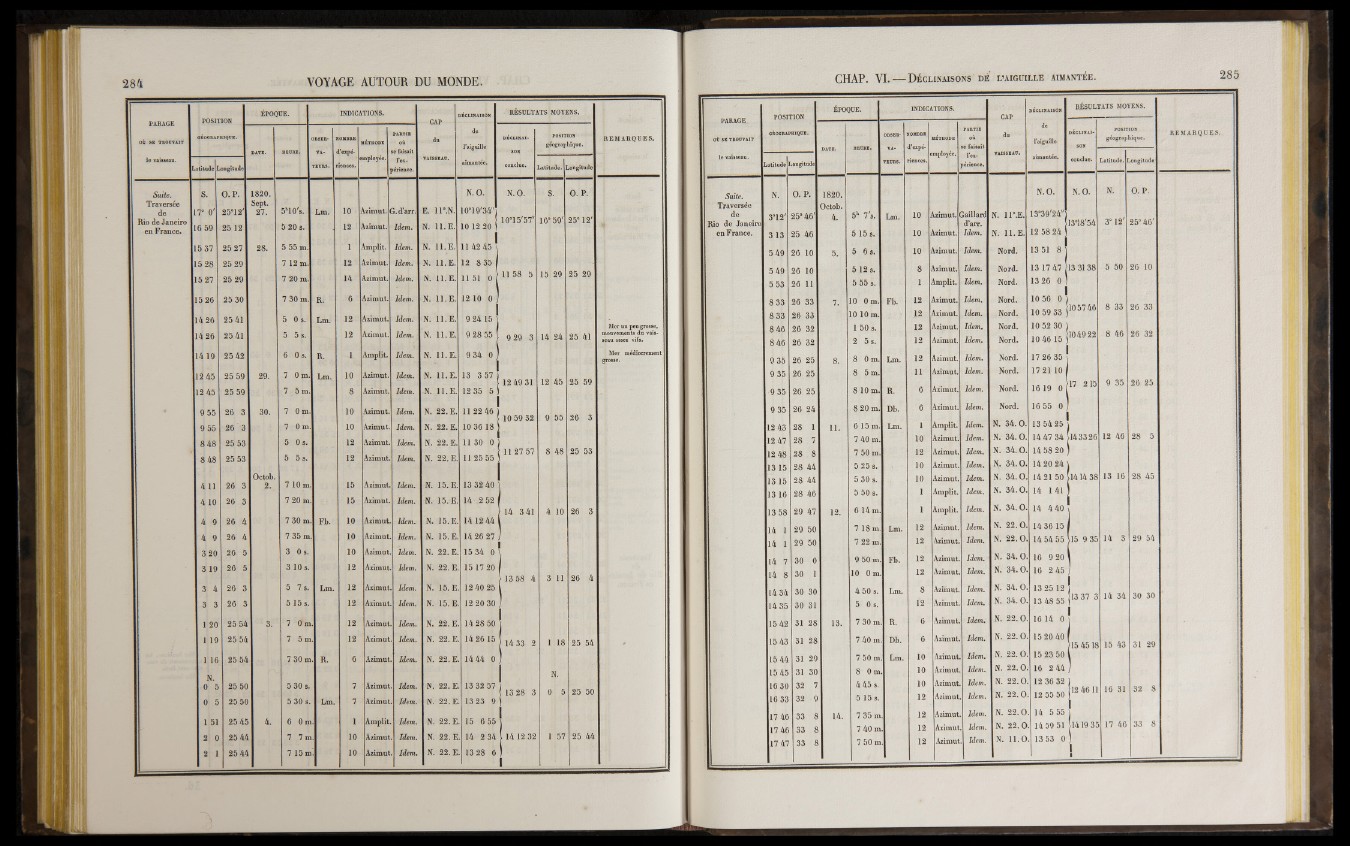 284 VOYAGE AUTOUR DU MONDE.
PARAGE OÙ SE TROUVAIT le vaisseau. | POSITION GÉOGRAPHIQUE. Latitude Longitude | ÉPOQUE. DATE. HEURE. | INDICATIONS. OBSERVATEURS. NOMBRE d'expériences. MÉTHODE employée. PARTIE où se faisait l'expérience. | CAP du VAISSEAU. | DÉCLINAISON de l'aiguille aimantée. | RÉSULTATS MOYENS. DÉCLINAISON conclue. POSITION géographique. Latitude. Longitude | REMARQUES.
Suite. Traversée de Rio de Janeiro en France.
S. O.P. 1820. N.O. N.O. S. O.P.
17° 0' 25°12' Sept. 27. 5h10's. Lm. 10 Azimut. G.d'arr. E. 11°.N. 10°19'34"
16 59 25 12 5 20 s. 12 Azimut. Idem. N. 11.E. 10 12 20
10°15'57" 16°59' 25°12'
15 37 25 27 28. 5 55 m. 1 Amplit. Idem. N. 11.E. 11 42 45
15 28 25 29 7 12 m. 12 Azimut. Idem. N. 11.E. 12 8 35
15 27 25 29 7 20 m. 14 Azimut. Idem. N. 11.E. 11 51 0
11 58 5 15 29 25 29
15 26 25 30 7 30 m. R. 6 Azimut. Idem. N. 11.E. 12 10 0
14 26 25 41 5 0 s. Lm. 12 Azimut. Idem. N. 11.E. 9 24 15
14 26 25 41 5 5 s. 12 Azimut. Idem. N. 11.E. 9 28 55
9 29 3 14 24 25 41
Mer un peu grosse, mouvements du vaisseau assez vifs.
14 19 25 42 6 0 s. R. 1 Amplit. Idem. N. 11.E. 9 34 0
Mer médiocrement grosse.
12 45 25 59 29. 7 0 m. Lm. 10 Azimut. Idem. N. 11.E. 13 3 57
12 45 25 59 7 5 m. 8 Azimut. Idem. N. 11.E. 12 35 5
12 49 31 12 45 25 59
9 55 26 3 30. 7 0 m. 10 Azimut. Idem. N. 22.E. 11 22 46
9 55 26 3 7 0 m. 10 Azimut. Idem. N. 22.E. 10 36 18
10 59 32 9 55 26 3
8 48 25 53 5 0 s. 12 Azimut. Idem. N. 22.E. 11 30 0
8 48 25 53 5 5 s. 12 Azimut. Idem. N. 22.E. 11 25 55
11 27 57 8 48 25 53
4 11 26 3 Octob. 2. 7 10 m. 15 Azimut. Idem. N. 15.E. 13 32 40
4 10 26 3 7 20 m. 15 Azimut. Idem. N. 15.E. 14 2 52
4 9 26 4 7 30 m. Fb. 10 Azimut. Idem. N. 15.E. 14 12 44
14 3 41 4 10 26 3
4 9 26 4 7 35 m. 10 Azimut. Idem. N. 15.E. 14 26 27
3 20 26 5 3 0 s. 10 Azimut. Idem. N. 22.E. 15 34 0
3 19 26 5 3 10 s. 12 Azimut. Idem. N. 22.E. 15 17 20
13 58 4 3 11 26 4
3 4 26 3 5 7 s. Lm. 12 Azimut. Idem. N. 15.E. 12 40 25
3 3 26 3 5 15 s. 12 Azimut. Idem. N. 15.E. 12 20 30
1 20 25 54 3. 7 0 m. 12 Azimut. Idem. N. 22.E. 14 28 50
1 19 25 54 7 5 m. 12 Azimut. Idem. N. 22.E. 14 26 15
14 33 2 1 18 25 54
1 16 25 54 7 30 m. R. 6 Azimut. Idem. N. 22.E. 14 44 0
N. N.
0 5 25 50 5 30 s. 7 Azimut. Idem. N. 22.E. 13 32 57
0 5 25 50 5 30 s. Lm. 7 Azimut. Idem. N. 22.E. 13 23 9
13 28 3 0 5 25 50
1 51 25 45 4. 6 0 m. 1 Amplit. Idem. N. 22.E. 15 6 55
2 0 25 44 7 7 m. 10 Azimut. Idem. N. 22.E. 14 2 34 14 12 32 1 57 25 44
2 1 25 44 7 15 m. 10 Azimut. Idem. N. 22.E. 13 28 6
CHAP. VI.—DÉCLINAISONS DE L'AIGUILLE AIMANTÉE. 285
PARAGE OÙ SE TROUVAIT le vaisseau. | POSITION GÉOGRAPHIQUE. Latitude Longitude | ÉPOQUE. DATE. HEURE. | INDICATIONS. OBSERVATEURS. NOMBRE d'expériences. MÉTHODE employée. PARTIE où se faisait l'expérience. | CAP du VAISSEAU. | DÉCLINAISON de l'aiguille aimantée. | RÉSULTATS MOYENS. DÉCLINAISON conclue. POSITION géographique. Latitude. Longitude | REMARQUES.
Suite. Traversée de Rio de Janeiro en France.
N. O.P. 1820. N.O. N.O. N. O.P.
3°12' 25°46' Octob. 4. 5h 7's. Lm. 10 Azimut. Gaillard d'arr. N. 11°.E. 13°39'24"
3 13 25 46 5 15 s. 10 Azimut. Idem. N. 11.E. 12 58 24
13°18'54" 3°12' 25°46'
5 49 26 10 5. 5 6 s. 10 Azimut. Idem. Nord. 13 51 8
5 49 26 10 5 12 s. 8 Azimut. Idem. Nord. 13 17 47 13 31 38 5 50 26 10
5 53 26 11 5 55 s. 1 Amplit. Idem. Nord. 13 26 0
8 33 26 33 7. 10 0 m. Fb. 12 Azimut. Idem. Nord. 10 56 0
8 33 26 33 10 10 m. 12 Azimut. Idem. Nord. 10 59 33
10 57 46 8 33 26 33
8 46 26 32 1 50 s. 12 Azimut. Idem. Nord. 10 52 30
8 46 26 32 2 5 s. 12 Azimut. Idem. Nord. 10 46 15
10 49 22 8 46 26 32
9 35 26 25 8. 8 0 m. Lm. 12 Azimut. Idem. Nord. 17 26 35
9 35 26 25 8 5 m. 11 Azimut. Idem. Nord. 17 21 10
9 35 26 25 8 10 m. R. 6 Azimut. Idem. Nord. 16 19 0
17 2 15 9 35 26 25
9 35 26 24 8 20 m. Db. 6 Azimut. Idem. Nord. 16 55 0
12 43 28 1 11. 6 15 m. Lm. 1 Amplit. Idem. N. 34.O. 13 54 25
12 47 28 7 7 40 m. 10 Azimut. Idem. N. 34.O. 14 47 34 14 33 26 12 46 28 5
12 48 28 8 7 50 m. 12 Azimut. Idem. N. 34.O. 14 58 20
13 15 28 44 5 25 s. 10 Azimut. Idem. N. 34.O. 14 20 24
13 15 28 44 5 30 s. 10 Azimut. Idem. N. 34.O. 14 21 50 14 14 38 13 16 28 45
13 16 28 46 5 50 s. 1 Amplit. Idem. N. 34.O. 14 1 41
13 58 29 47 12. 6 14 m. 1 Amplit. Idem. N. 34.O. 14 4 40
14 1 29 50 7 18 m. Lm. 12 Azimut. Idem. N. 22.O. 14 36 15
14 1 29 50 7 22 m. 12 Azimut. Idem. N. 22.O. 14 54 55 15 9 35 14 3 29 54
14 7 30 0 9 50 m. Fb. 12 Azimut. Idem. N. 34.O. 16 9 20
14 8 30 1 10 0 m. 12 Azimut. Idem. N. 34.O. 16 2 45
14 34 30 30 4 50 s. Lm. 8 Azimut. Idem. N. 34.O. 13 25 12
14 35 30 31 5 0 s. 12 Azimut. Idem. N. 34.O. 13 48 55
13 37 3 14 34 30 30
15 42 31 28 13. 7 30 m. R. 6 Azimut. Idem. N. 22.O. 16 14 0
15 43 31 28 7 40 m. Db. 6 Azimut. Idem. N. 22.O. 15 20 40
15 45 18 15 43 31 29
15 44 31 29 7 50 m. Lm. 10 Azimut. Idem. N. 22.O. 15 23 50
15 45 31 30 8 0 m. 10 Azimut. Idem. N. 22.O. 16 2 44
16 30 32 7 4 45 s. 10 Azimut. Idem. N. 22.O. 12 36 32
16 33 32 9 5 15 s. 12 Azimut. Idem. N. 22.O. 12 55 50
12 46 11 16 31 32 8
17 46 33 8 14. 7 35 m. 12 Azimut. Idem. N. 22.O. 14 5 55
17 46 33 8 7 40 m. 12 Azimut. Idem. N. 22.O. 14 59 51 14 19 35 17 46 33 8
17 47 33 8 7 50 m. 12 Azimut. Idem. N. 11.O. 13 53 0